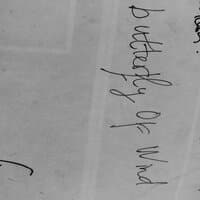 butterfly Of Wind